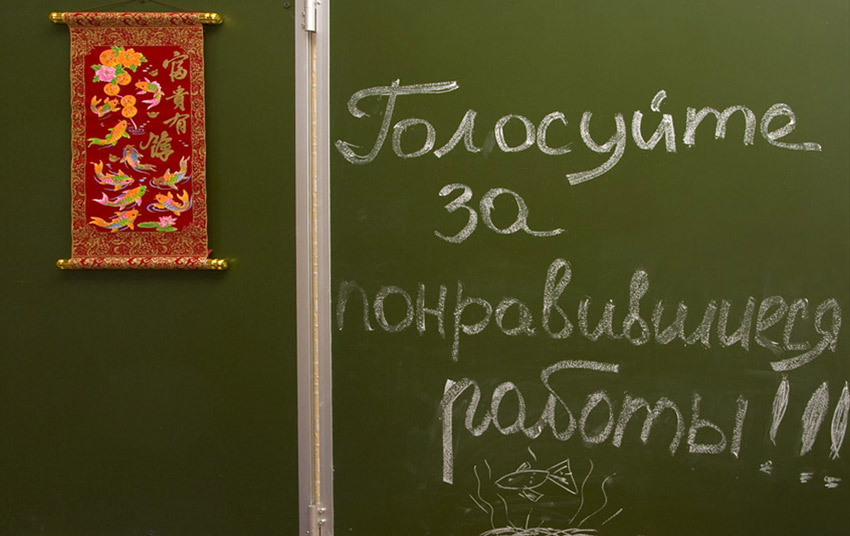 富貴有餘
Голосуйте
за
понравившиеся
работы!!!